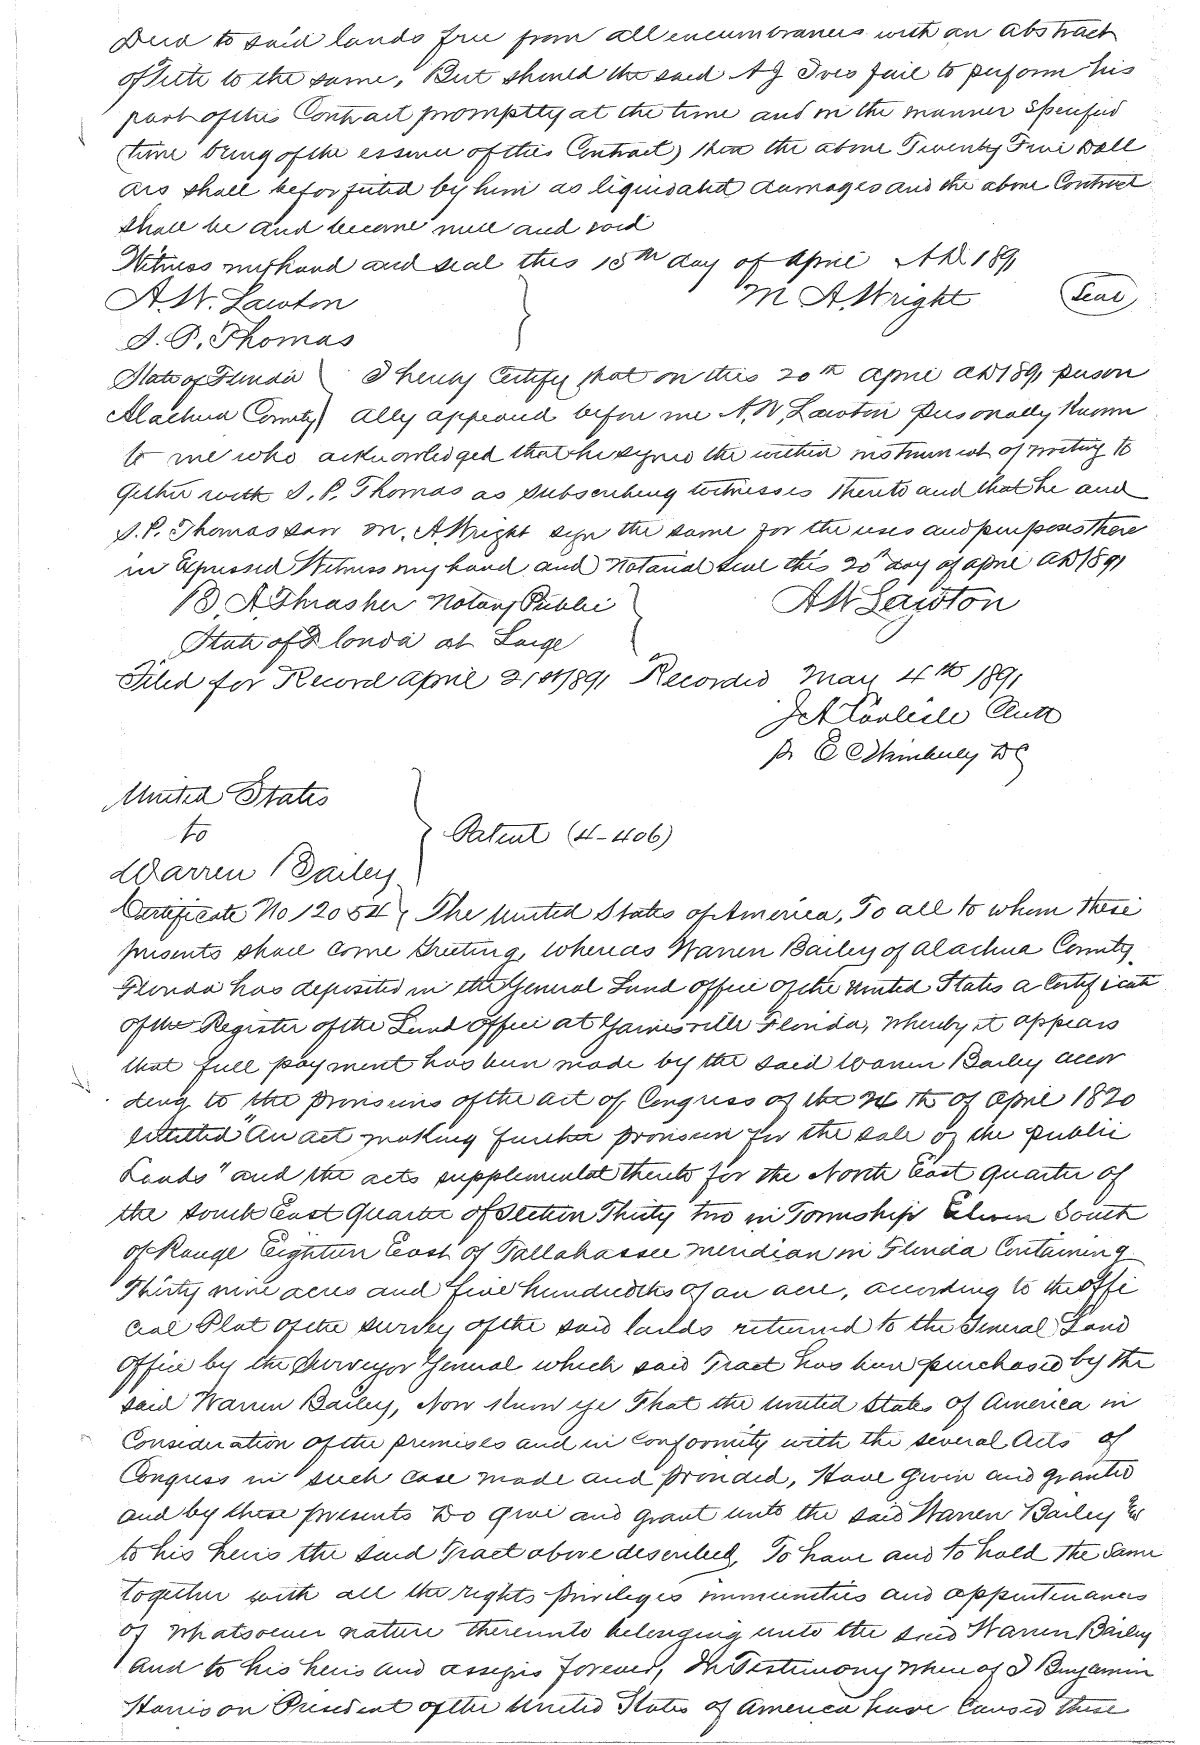 Deed to said lands free from all encumbrances with an abstract
of Title to the same, But should the said A J Ives fail to perform his
part of this Contract promptly at the time and in the manner specified
(time being of the essence of this Contract) then the above Twenty Five Doll
ars shall be forfeited by him as liquidated damages and the above Contract
shall be and become null and void
Witness my hand and seal this 15th day of April AD 1891
A. W. Lawton M A Wright Seal
S. P. Thomas
State of Florida I hereby Certify that on this 20th April AD 1891 person
Alachua County ally appeared before me A. W. Lawton personally known
to me who acknowledged that he signed the within instrument of writing to
gether with S. P. Thomas as subscribing witnesses thereto and that he and
S. P. Thomas saw M. A. Wright sign the same for the uses and purposes there
in Expressed Witness my hand and Notarial Seal this 20th day of April AD 1891
B. A. Thrasher Notary Public A W Lawton
State of Florida at Large
Filed for Record April 21st 1891 Recorded May 4th 1891
J A Carlisle Clerk
pr E C Wimberly DC
United States
to Patent (4-406)
Warren Bailey
Certificate No 12054 The United States of America, To all to whom these
presents shall come Greeting, Whereas Warren Bailey of Alachua County
Florida has deposited in the General Land Office of the United States a Certificate
of the Register of the Land Office at Gainesville Florida, whereby it appears
that full payment has been made by the said Warren Bailey accor
ding to the provisions of the act of Congress of the 24th of April 1820
entitled "An act making further provision for the sale of the public
Lands" and the acts supplemental thereto for the North East quarter of
the South East quarter of Section Thirty two in Township Eleven South
of Range Eighteen East of Tallahassee Meridian in Florida Containing
Thirty nine acres and five hundredths of an acre, according to the offi
cial Plat of the survey of the said lands returned to the General Land
Office by the Surveyor General which said Tract has been purchased by the
said Warren Bailey, Now know ye That the United States of America in
Consideration of the premises and in conformity with the several Acts of
Congress in such case made and provided, Have given and granted
and by these presents Do give and grant unto the said Warren Bailey &
to his heirs the said Tract above described, To have and to hold the same
together with all the rights privileges immunities and appurtenances
of whatsoever nature thereunto belonging unto the said Warren Bailey
and to his heirs and assigns forever, In Testimony Whereof I Benjamin
Harrison President of the United States of America have caused these